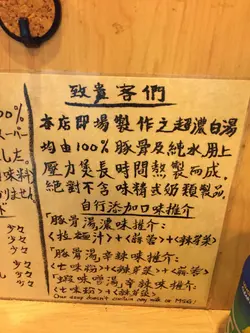 致貴客們
本店即場製作之超濃白湯
均由100%豚骨及純水，用上
壓力煲長時間熬製而成，
絕對不含味精或奶類製品。
自行添加口味推介：
「豚骨湯濃味推介：
〈拉麵汁〉+〈蒜蓉〉+〈辣芽菜〉
「豚骨湯辛辣味推介：
〈七味粉〉+〈辣芽菜〉+〈蒜蓉〉
味噌湯辛辣味推介：
〈七味粉〉+〈辣芽菜〉
Our soup doesn't contain any milk or MSG!
00%
スーパー
した。
味料
りません
少々
少々
少々